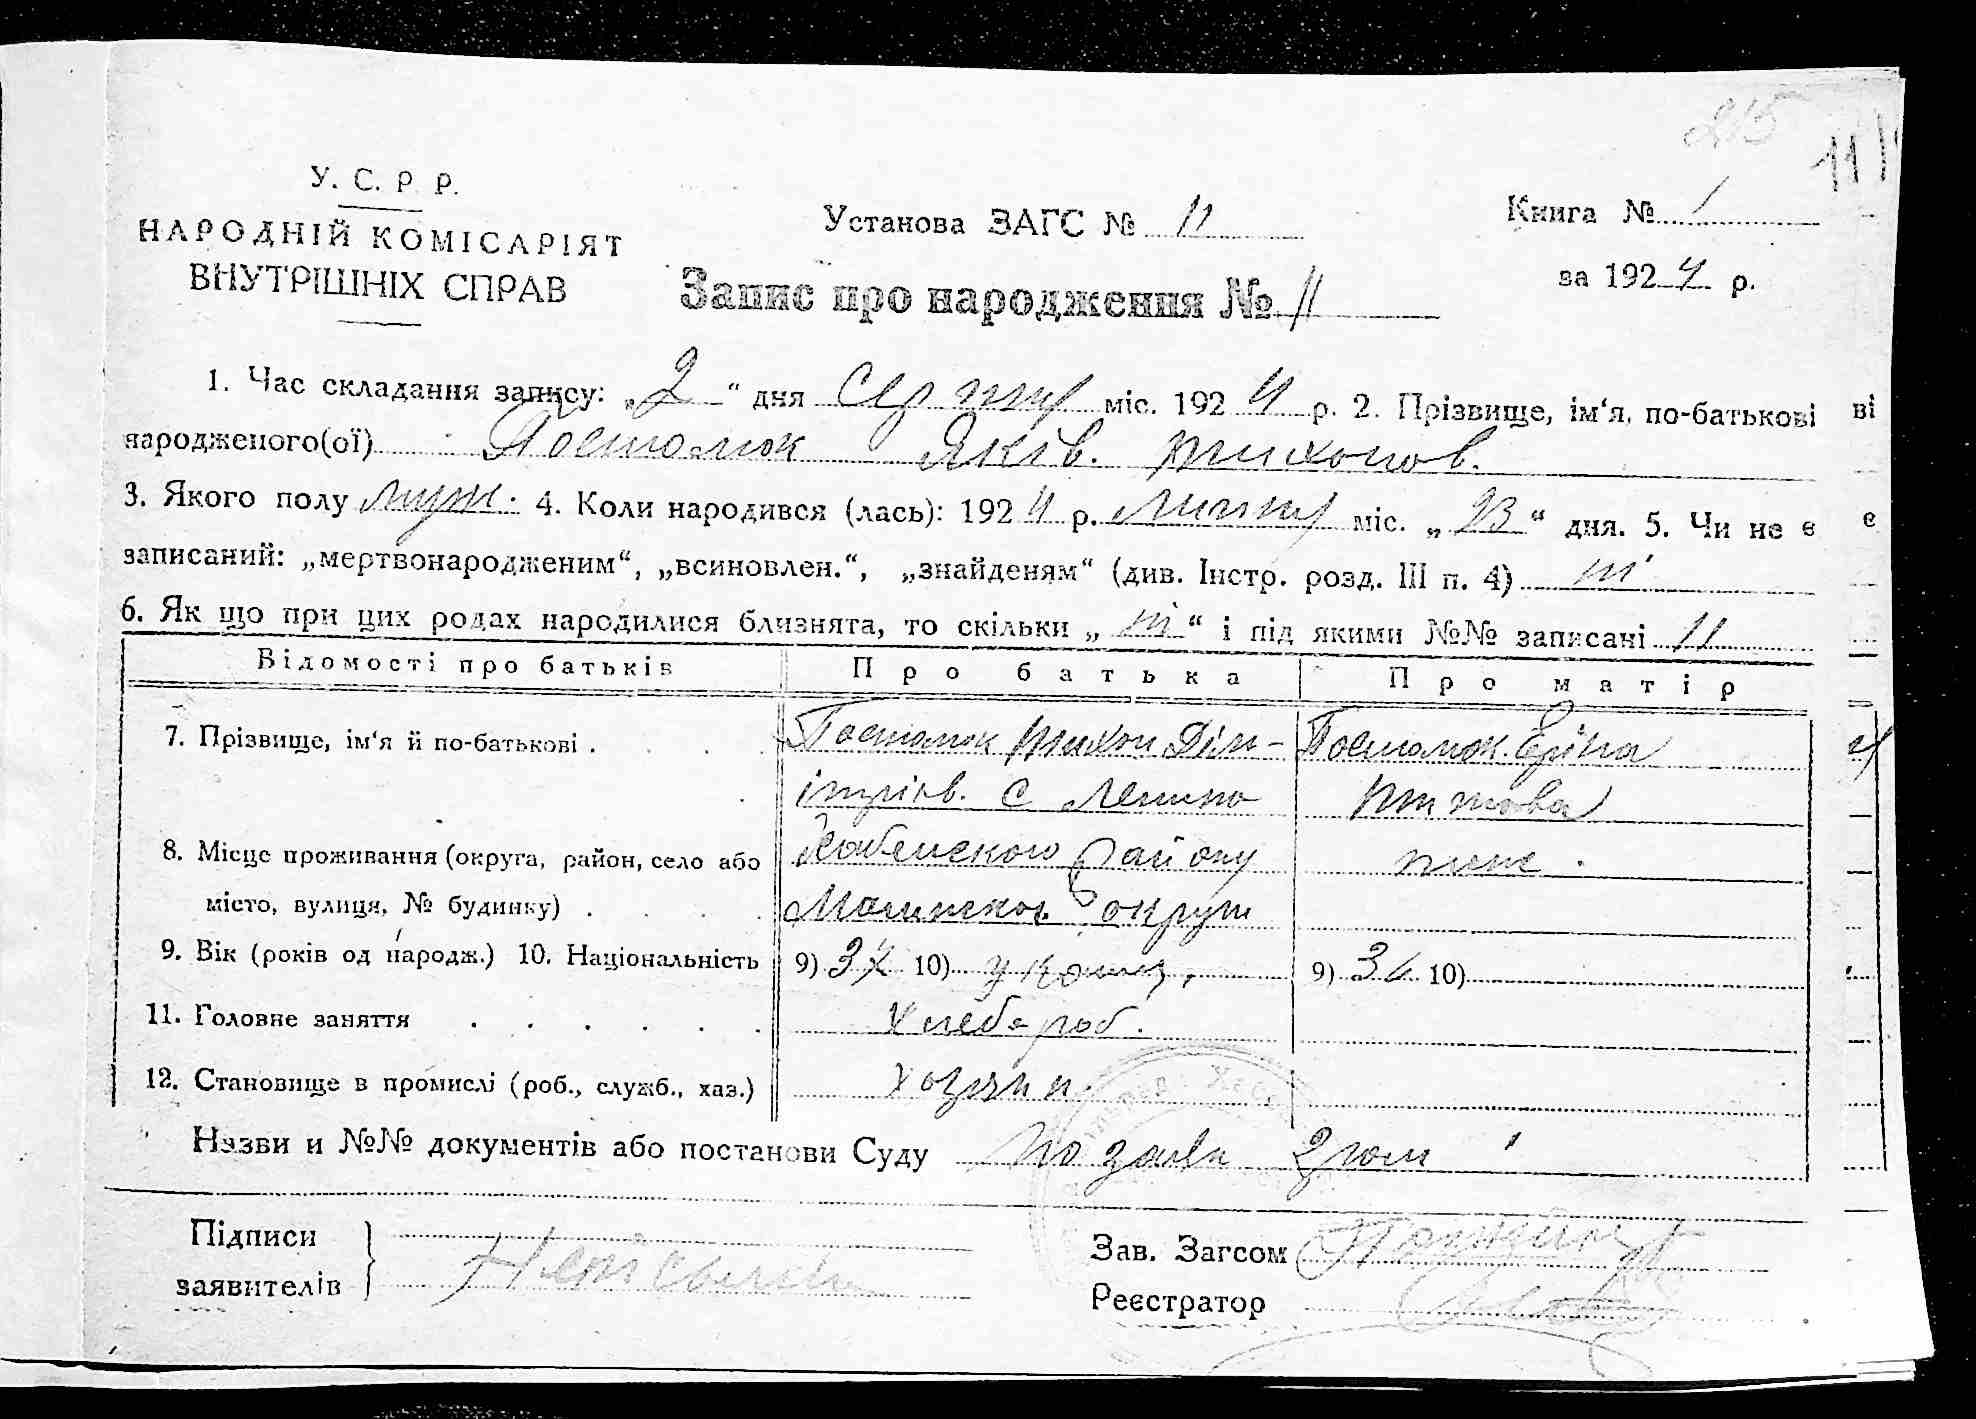 215
11
У. С. Р. Р.
НАРОДНІЙ КОМІСАРІЯТ
ВНУТРІШНІХ СПРАВ
Установа ЗАГС № 11
Книга № 1
за 1924 р.
Запис про народження № 11
1. Час складання запису: „2“ дня Серпня міс. 1924 р. 2. Прізвище, ім‘я, по-батькові
народженого(ої) Постолюк Яків. Тихонов.
3. Якого полу муж. 4. Коли народився (лась): 1924 р. Липня міс. „23“ дня. 5. Чи не є
записаний: „мертвонародженим“, „всиновлен.“, „знайденям“ (див. Інстр. розд. III п. 4) ні
6. Як що при цих родах народилися близнята, то скільки „ні“ і під якими №№ записані 11
Відомості про батьків Про батька Про матір
7. Прізвище, ім‘я й по-батькові . Постолюк Тихон Дім- Постолюк Еріна
ітрієв. с Титова
8. Місце проживання (округа, район, село або Хабенского Району
місто, вулиця, № будинку) . округи
9. Вік (років од народж.) 10. Національність 9) 37 10) 9) 10)
11. Головне заняття Хлебороб.
12. Становище в промислі (роб., служб., хаз.) хозяин
Назви и №№ документів або постанови Суду по заяві
Підписи
заявителів
Зав. Загсом
Реєстратор
ві
є